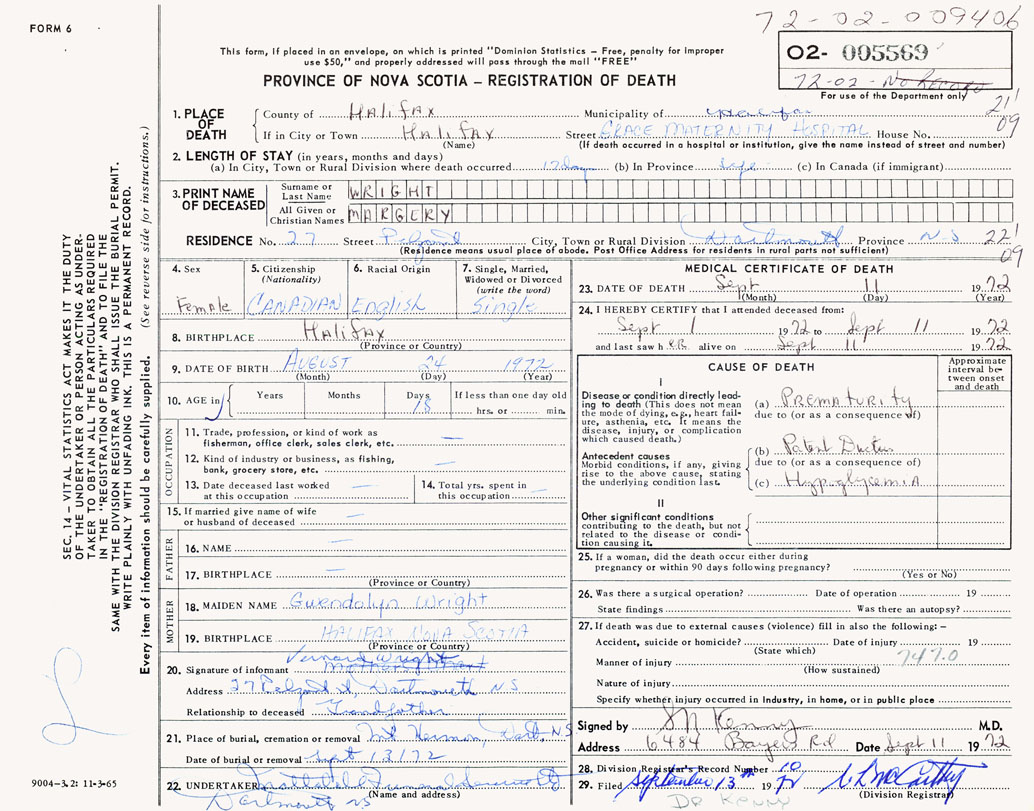 FORM 6
72-02-009406
This form, if placed in an envelope, on which is printed "Dominion Statistics – Free, penalty for improper
use $50," and properly addressed will pass through the mail "FREE"
PROVINCE OF NOVA SCOTIA – REGISTRATION OF DEATH
02- 005569
72-02-No Record
For use of the Department only
21'
09
1. PLACE OF DEATH
County of Halifax Municipality of
If in City or Town Halifax Street GRACE MATERNITY HOSPITAL House No.
(Name) (If death occurred in a hospital or institution, give the name instead of street and number)
2. LENGTH OF STAY (in years, months and days)
(a) In City, Town or Rural Division where death occurred 17 days (b) In Province Life (c) In Canada (if immigrant)
3. PRINT NAME OF DECEASED
Surname or Last Name WRIGHT
All Given or Christian Names MARGERY
RESIDENCE No. 27 Street City, Town or Rural Division Dartmouth Province N-S 22'
(Residence means usual place of abode. Post Office Address for residents in rural parts not sufficient) 09
4. Sex
Female
5. Citizenship (Nationality)
CANADIAN
6. Racial Origin
English
7. Single, Married, Widowed or Divorced (write the word)
Single
8. BIRTHPLACE Halifax
(Province or Country)
9. DATE OF BIRTH AUGUST 24 1972
(Month) (Day) (Year)
10. AGE in Years Months Days 18 If less than one day old
hrs. or min.
OCCUPATION
11. Trade, profession, or kind of work as
fisherman, office clerk, sales clerk, etc. —
12. Kind of industry or business, as fishing,
bank, grocery store, etc. —
13. Date deceased last worked
at this occupation —
14. Total yrs. spent in
this occupation —
15. If married give name of wife
or husband of deceased —
FATHER
16. NAME —
17. BIRTHPLACE —
(Province or Country)
MOTHER
18. MAIDEN NAME Gwendolyn Wright
19. BIRTHPLACE HALIFAX NOVA SCOTIA
(Province or Country)
20. Signature of informant Vernard Wright
Address 27 St, Dartmouth N.S
Relationship to deceased Grandfather
21. Place of burial, cremation or removal Mt Hermon, Dart, NS
Date of burial or removal Sept 13/72
22. UNDERTAKER
Dartmouth NS (Name and address)
MEDICAL CERTIFICATE OF DEATH
23. DATE OF DEATH Sept 11 1972
(Month) (Day) (Year)
24. I HEREBY CERTIFY that I attended deceased from:
Sept 1 1972 to Sept 11 1972
and last saw her alive on Sept 11 1972
CAUSE OF DEATH
Approximate interval between onset and death
I
Disease or condition directly leading to death (This does not mean the mode of dying, e.g., heart failure, asthenia, etc. It means the disease, injury, or complication which caused death.)
(a) PREMATURITY
due to (or as a consequence of)
Antecedent causes
Morbid conditions, if any, giving rise to the above cause, stating the underlying condition last.
(b) Patent Ductus
due to (or as a consequence of)
(c) Hypoglycemia
II
Other significant conditions
contributing to the death, but not related to the disease or condition causing it.
25. If a woman, did the death occur either during
pregnancy or within 90 days following pregnancy?
(Yes or No)
26. Was there a surgical operation? Date of operation 19
State findings Was there an autopsy?
27. If death was due to external causes (violence) fill in also the following: –
Accident, suicide or homicide? Date of injury 19
(State which) 747.0
Manner of injury
(How sustained)
Nature of injury
Specify whether injury occurred in Industry, in home, or in public place
Signed by M Kenny M.D.
Address 6484 Bayers Rd Date Sept 11 1972
28. Division Registrar's Record Number 10
29. Filed September 13th 1972
(Division Registrar)
Dr Kenny
SEC. 14 – VITAL STATISTICS ACT MAKES IT THE DUTY
OF THE UNDERTAKER OR PERSON ACTING AS UNDER-
TAKER TO OBTAIN ALL THE PARTICULARS REQUIRED
IN THE "REGISTRATION OF DEATH" AND TO FILE THE
SAME WITH THE DIVISION REGISTRAR WHO SHALL ISSUE THE BURIAL PERMIT.
WRITE PLAINLY WITH UNFADING INK. THIS IS A PERMANENT RECORD.
Every item of information should be carefully supplied. (See reverse side for instructions.)
9004–3.2: 11-3-65